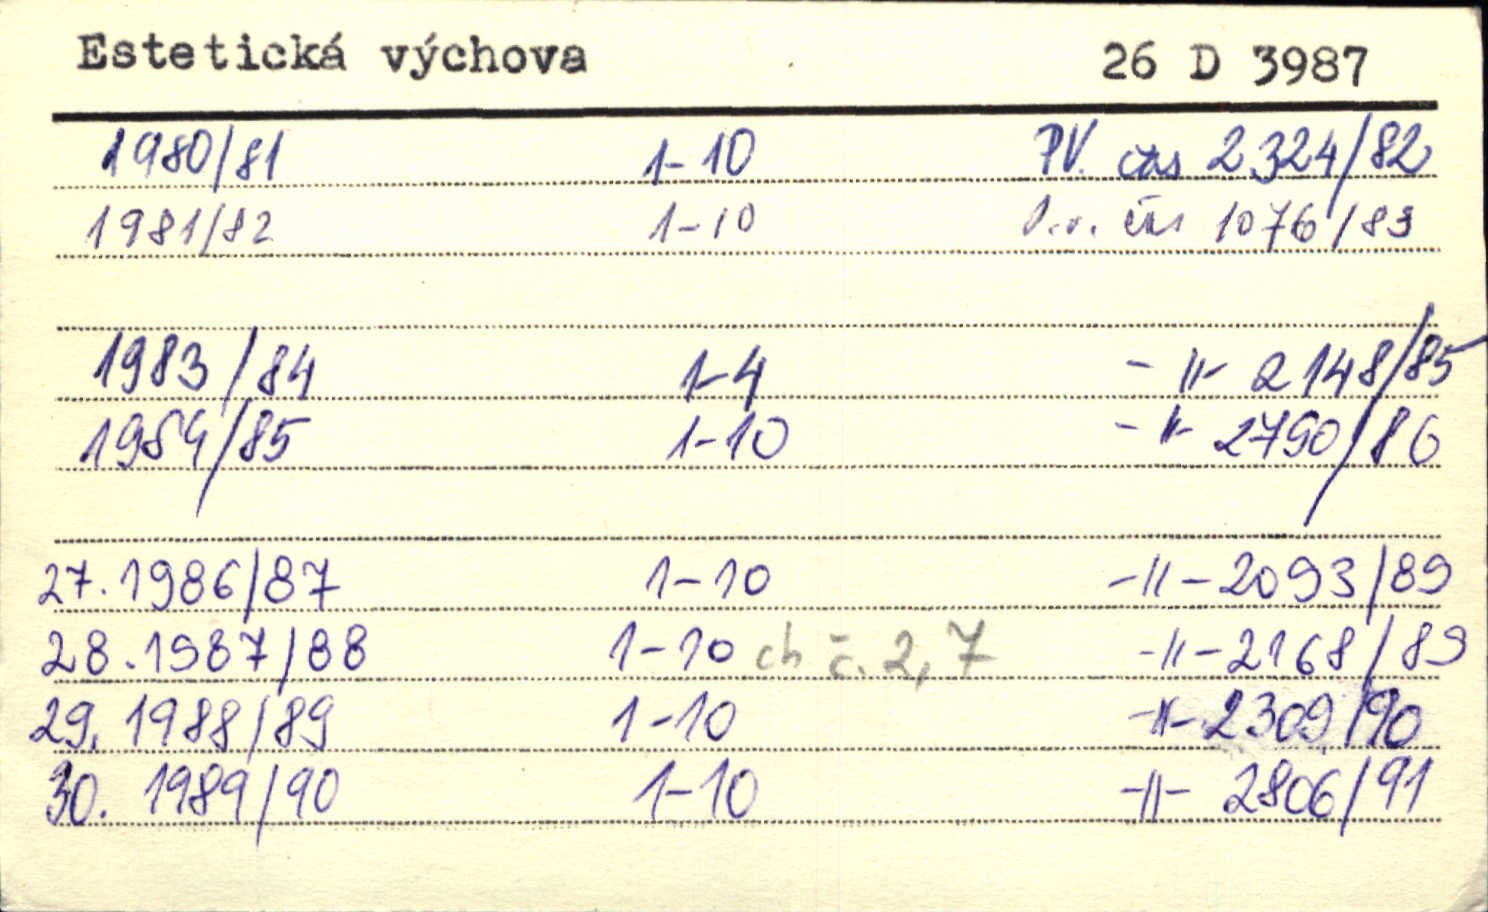 Estetická výchova 26 D 3987
1980/81 1-10 PV. čas 2324/82
1981/82 1-10 P.v. čas 1076/83
1983/84 1-4 -||- 2148/85
1984/85 1-10 -||- 2790/86
27. 1986/87 1-10 -||- 2093/89
28. 1987/88 1-10 ch č. 2,7 -||- 2168/89
29. 1988/89 1-10 -||- 2309/90
30. 1989/90 1-10 -||- 2806/91